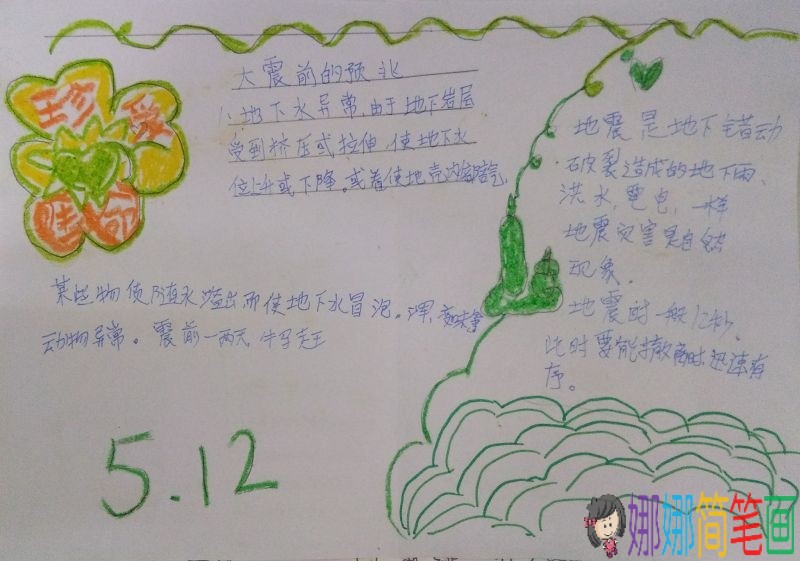 珍爱
生命
大震前的预兆
1、地下水异常,由于地下岩层
受到挤压或拉伸,使地下水
位上升或下降。或者使地壳内部
某些物质随水溢出而使地下水冒泡。浑,变味等
动物异常。震前一两天,牛
5.12
地震是地下错动
破裂造成的地下雨、
洪水,电,一样
地震灾害是自然
现象。
地震时一般12秒,
此时要能撤离时迅速有
序。
娜娜简笔画